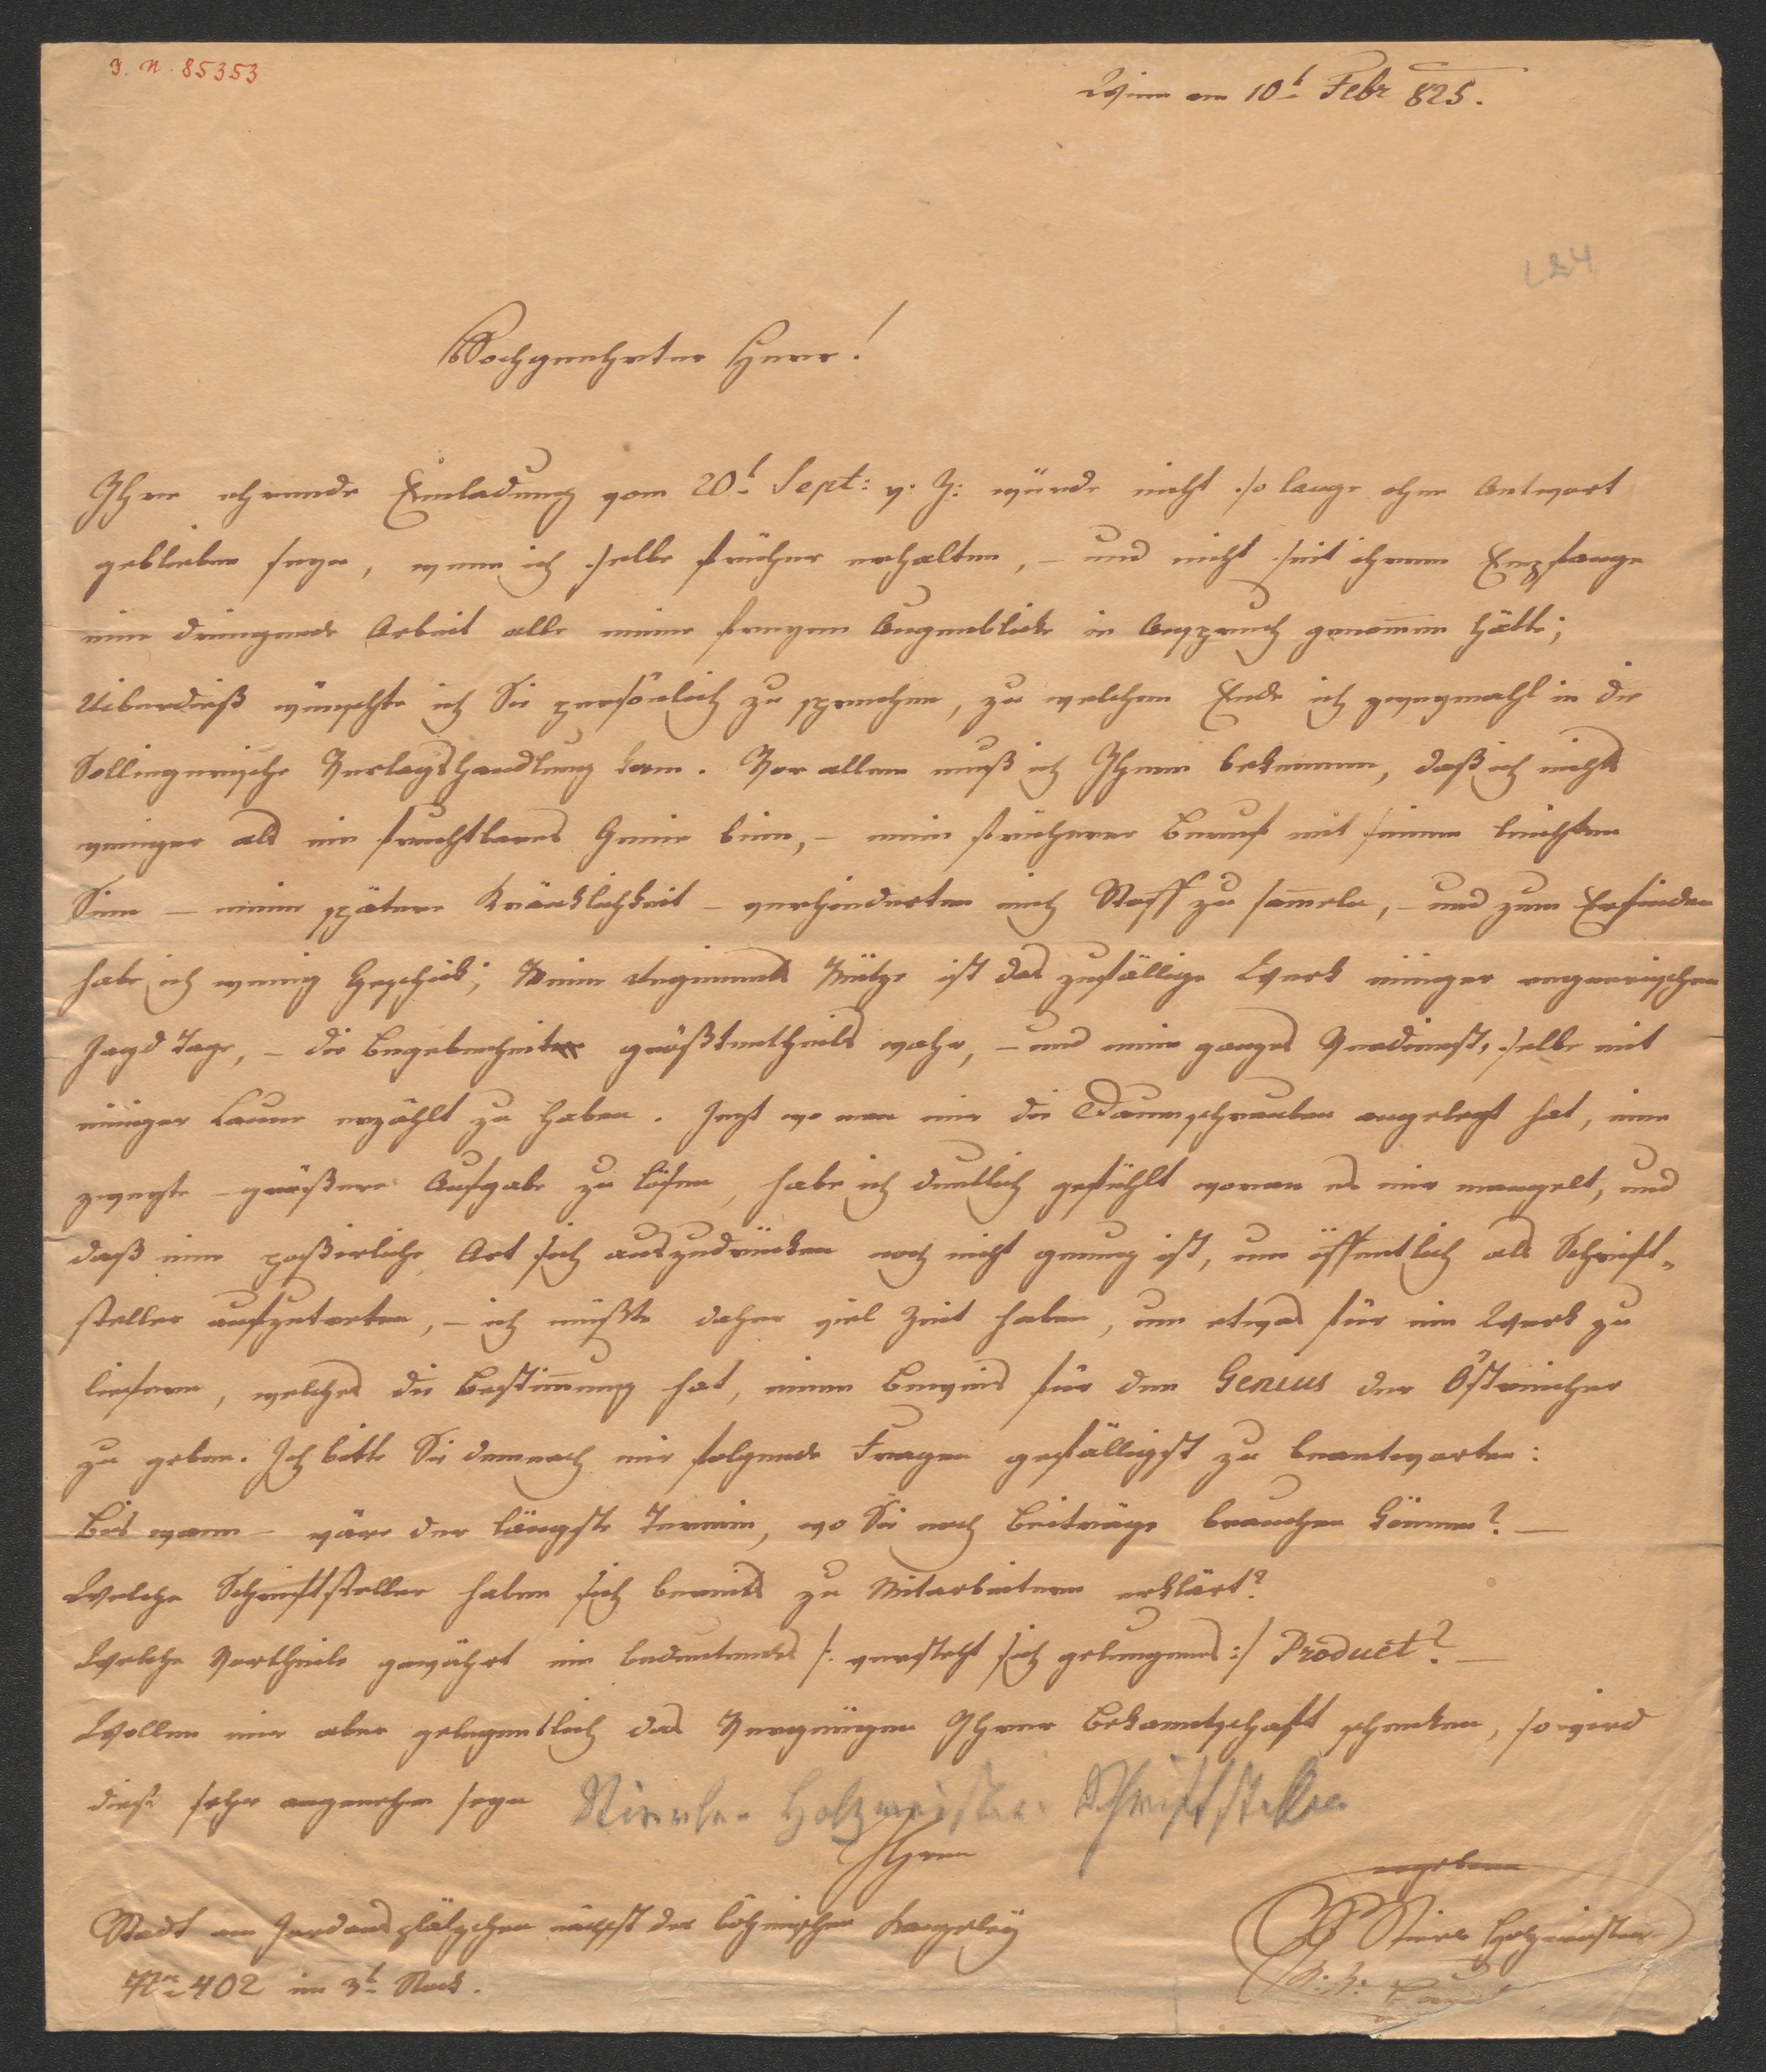 I. N. 85353
Wien am 10t Febr 825.
Hochgeehrter Herr!
Ihre ehrende Einladung vom 20t Sept: v: J: würde nicht so lange ohne Antwort
geblieben seyn, wenn ich selbe früher erhalten, – und nicht seit ihrem Empfange
eine dringende Arbeit alle meine freyen Augenblicke in Anspruch genom̄en hätte;
Uiberdieß wünschte ich Sie persönlich zu sprechen, zu welchem Ende ich zweymahl in die
Sollingerische Verlagshandlung kam. Vor allem muß ich Ihnen bekennen, daß ich nichts
weniger als ein fruchtbares Genie bin, – mein früherer Beruf mit seinem leichten
Sinn – meine spätere Kränklichkeit – verhinderten mich Stoff zu sam̄eln, – und zum Erfinden
habe ich wenig Geschick; Meine Regiments Mütze ist das zufällige Werk einiger regnerischen
Jagd Tage, – die Begebenheit größtentheils wahr, – und mein ganzes Verdienst, selbe mit
einiger Laune erzählt zu haben. Jezt wo man mir die Daumschrauben angelegt hat, eine
zweyte – größere Aufgabe zu lösen, habe ich deutlich gefühlt woran es mir mangelt, und
daß eine poßierliche Art sich auszudrücken noch nicht genug ist, um öffentlich als Schrift„
steller aufzutreten, – ich müßte daher viel Zeit haben, um etwas für ein Werk zu
liefern, welches die Bestim̄ung hat, einen Beweis für den Genius der Östreicher
zu geben. Ich bitte Sie demnach mir folgende Fragen gefälligst zu beantworten:
Bis wann – wäre der längste Termin, wo Sie noch Beiträge brauchen können? –
Welche Schriftsteller haben sich bereits zu Mitarbeitern erklärt?
Welche Vortheile gewährt ein bedeutendes /: versteht sich gelungenes :/ Product? –
Wollen mir aber gelegentlich das Vergnügen Ihrer Bekanntschaft schenken, so wird
dieß sehr angenehm seyn
Holzmeister Schriftsteller
Ihrem
ergebenen
Stadt am Jordansplätzchen nächst der böhmischen Kanzley
Nro 402 im 3t Stock.
Holzmeister